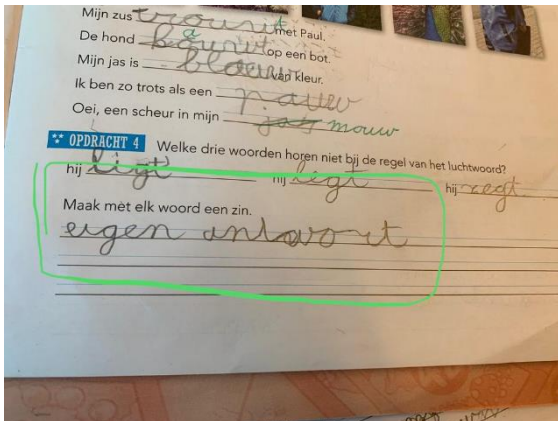 Mijn zus trouwt met Paul.
De hond kauwt op een bot.
Mijn jas is blauw van kleur.
Ik ben zo trots als een pauw
Oei, een scheur in mijn jas mouw
** OPDRACHT 4 Welke drie woorden horen niet bij de regel van het luchtwoord?
hij ligt hij legt hij zegt
Maak met elk woord een zin.
eigen antwoort